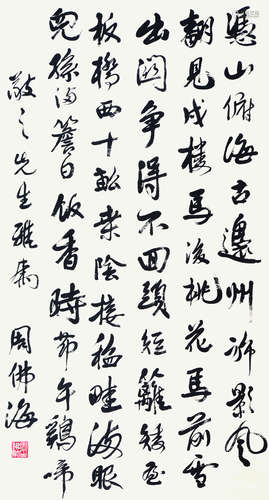 憑山俯海古邊州旆影風
翻見戍樓馬後桃花馬前雪
出關争得不回頭短籬矮屋
板橋西十畝桑陰接稻畦滿眼
兒孫滿簷日飯香時節午鷄啼
敬之先生雅屬
周佛海